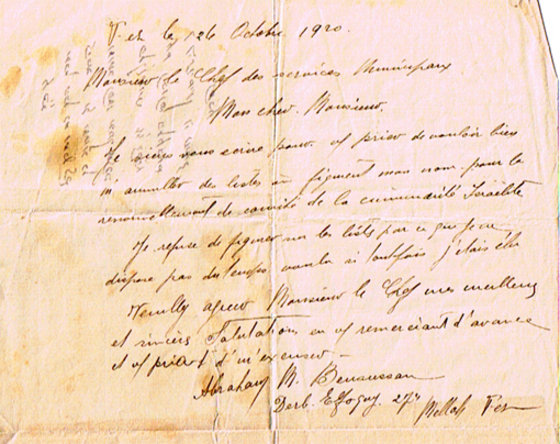 Fez le 26 Octobre 1920.
Monsieur le Chef des services Municipaux
Mon cher Monsieur.
Je viens vous écrire pour vs prier de vouloir bien
m'annuller des listes où figurent mon nom pour le
renouvellement de comité de la communauté Israélite
Je refuse de figurer sur les lists par ce que je ne
dispose pas du temps voulu si toutfois j'étais élu
Veuilly agréer Monsieur le Chef mes meilleurs
et sincères Salutations en vs remerciant d'avance
et vs priant d'm'excuser –
Abraham M. Benaussan
Derb. 27 Mellah Fez